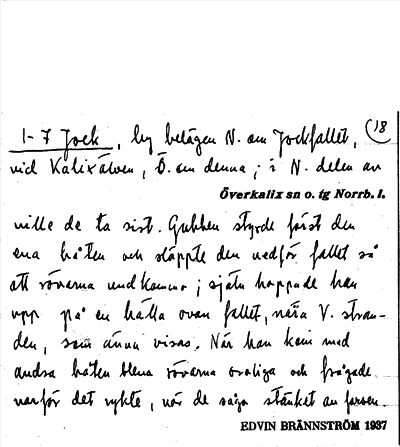 18
1-7 Jock, by belägen N. om Jockfallet,
vid Kalixälven, Ö. om denna; i N. delen av
Överkalix sn o. tg Norrb. l.
ville de ta sist. Gubben styrde först den
ena båten och släppte den nedför fallet så
att rövarna undkommo; själv hoppade han
upp på en hälla ovan fallet, nära V. stran-
den, som ännu visas. När han kom med
andra båten blevo rövarna oroliga och frågade
varför det rykte, när de sågo stänket av forsen.
EDVIN BRÄNNSTRÖM 1937